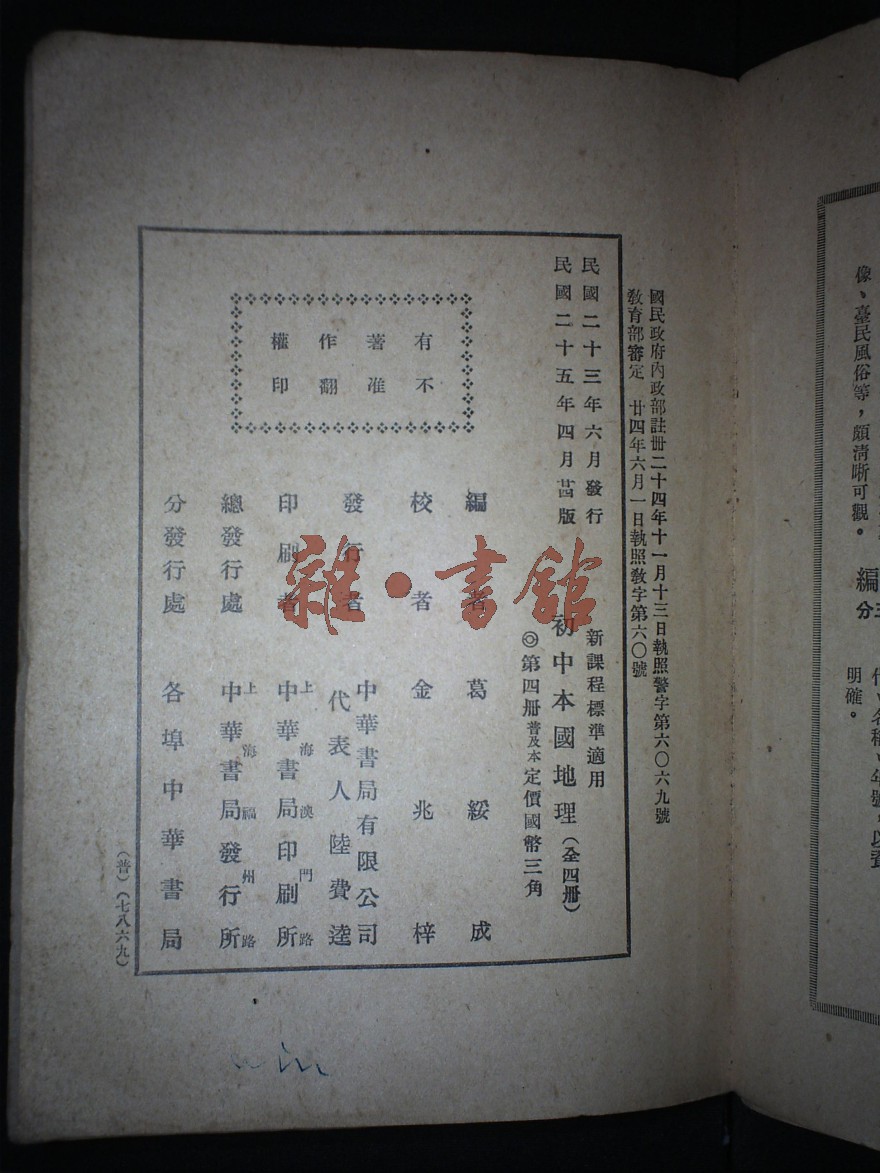 像、臺民風俗等，頗清晰可觀。
編
明確。
國民政府內政部註冊二十四年十一月十三日執照警字第六〇六九號
教育部審定 廿四年六月一日執照教字第六〇號
民國二十三年六月發行
民國二十五年四月 版
新課程標準適用
初中本國地理（全四冊）
◎第四冊普及本定價國幣三角
有著作權
不准翻印
編者 葛綏成
校者 金兆梓
發行者 中華書局有限公司
代表人 陸費逵
印刷者 上海澳門路
中華書局印刷所
總發行處 上海福州路
中華書局發行所
分發行處 各埠中華書局
（普）（七八六九）
雜·書館
win